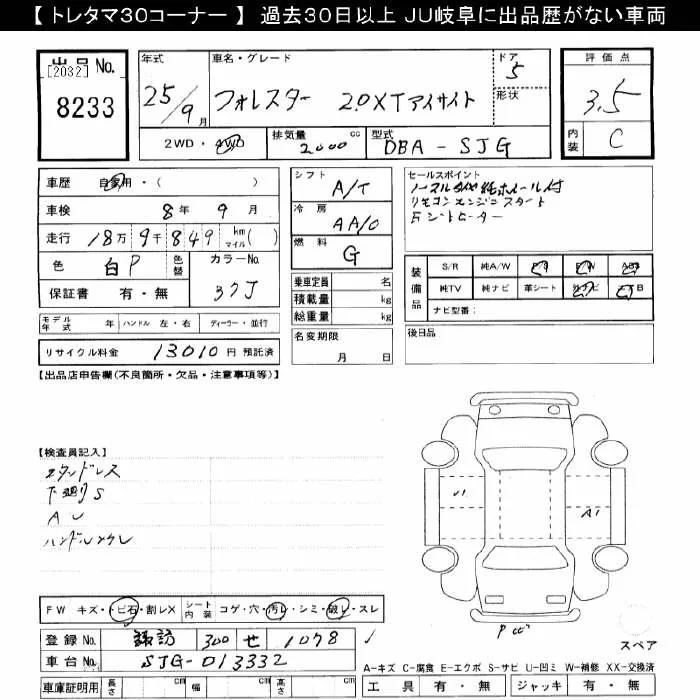 【 トレタマ30コーナー 】 過去30日以上 JU岐阜に出品歴がない車両
出品 No.
[2032]
8233
年式
25/9月
車名・グレード
フォレスター 2.0XTアイサイト
ドア
5
形状
評価点
3.5
内装
C
2WD・4WD
排気量
2000 cc
型式
DBA-SJG
車歴 自家用・( )
車検 8年 9月
走行 18万 9千 849 km マイル( )
色 白P
色替
カラーNo.
37J
保証書 有・無
シフト
A/T
冷房
AAC
燃料
G
乗車定員 名
積載量 kg
総重量 kg
名変期限
月 日
セールスポイント
リモコンエンジンスタート
装備品
S/R 純A/W P/S P/W ABS
純TV 純ナビ 革シート
ナビ型番:
後日品
モデル年式 年 ハンドル 左・右 ディーラー・並行
リサイクル料金 13010円 預託済
【出品店申告欄(不良箇所・欠品・注意事項等)】
【検査員記入】
下廻りS
AU
U1
A1
スペア
FW キズ・トビ石・割レX
シート内装 コゲ・穴・汚レ・シミ・破レ・スレ
登録No. 諏訪 300 せ 1078
車台No. SJG-013332
車庫証明用 長さ cm 幅 cm 高さ cm
A-キズ C-腐食 E-エクボ S-サビ U-凹ミ W-補修 XX-交換済
工具 有・無 ジャッキ 有・無